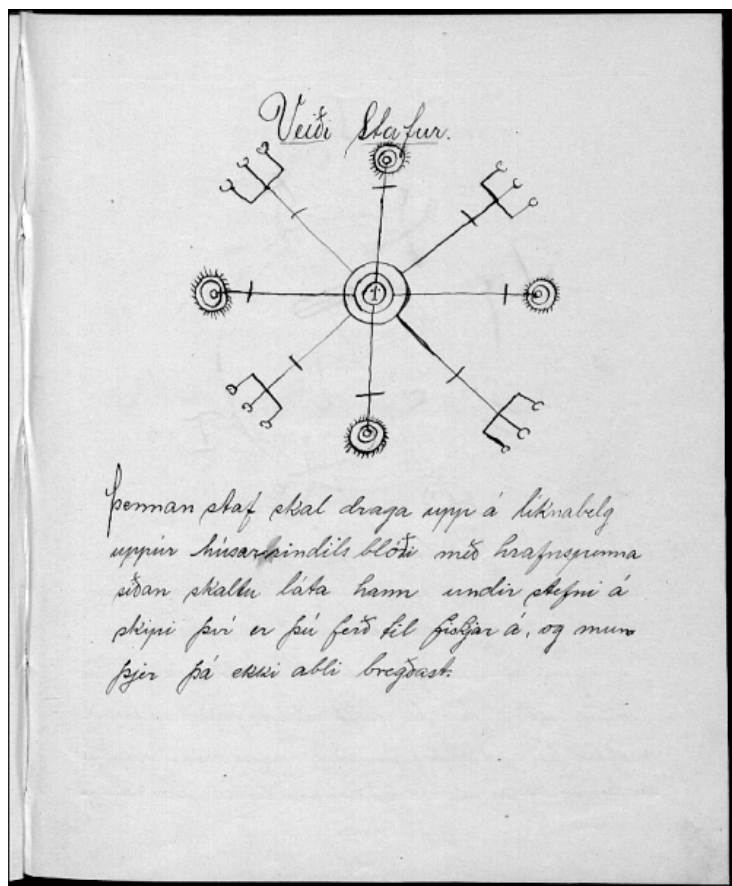 Veiði stafur.
Þennan staf skal draga upp á líknabelg
uppúr músarrindils blóði með hrafnspenna
síðan skaltu láta hann undir stefni á
skipi því er þú ferð til fiskjar á, og mun
þjer þá ekki abli bregðast.